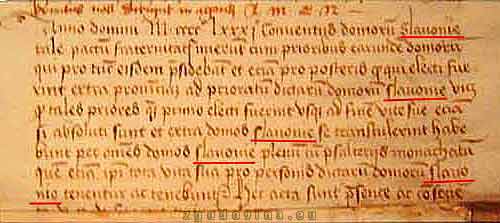 Anno domini M cccc lxxx j Conventus domorū Slavonie
tale pactū fraternitatis inierūt cum prioribus earunde domorū
qui pro tūc eisdem psidebāt et eciā pro posteris qui electi fue
rint extra provinciā ad prioratū dictarū domorū Slavonie viz
q tales priores qui primo electi fuerint usq ad finē vite sue eciā
si absoluti sint et extra domos Slavonie se transtulerint habe
bunt per omēs domos Slavonie plenū psalteriū monachatū
que eciā ipi tota vita sua pro personis dictarū domorū Slavo
nie tenentur ac tenebuntur Hec acta sunt psente ac cosente
zgodovina.eu